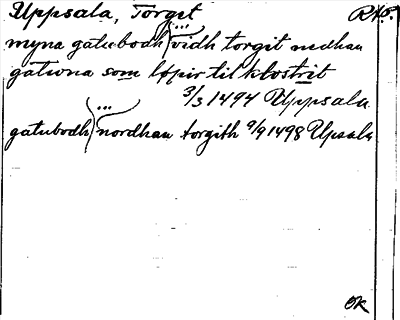 Uppsala, Torget RAP.
myna gatubodh ... vidh torgit nædhan
gatwna som løpir til klostrit
3/3 1494 Uppsala
gatubodh ... nordhan torgith 9/9 1498 Upsala
OK